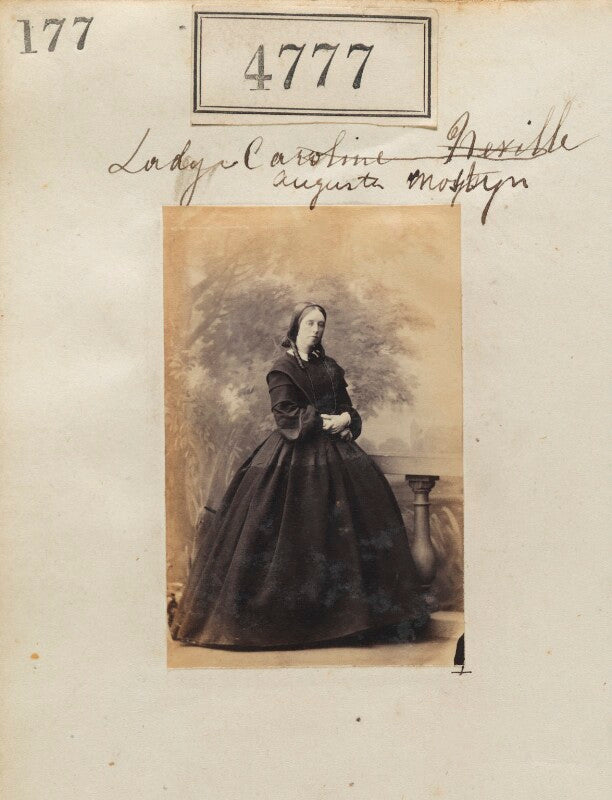 177
4777
Lady Caroline Neville
Augusta Mostyn